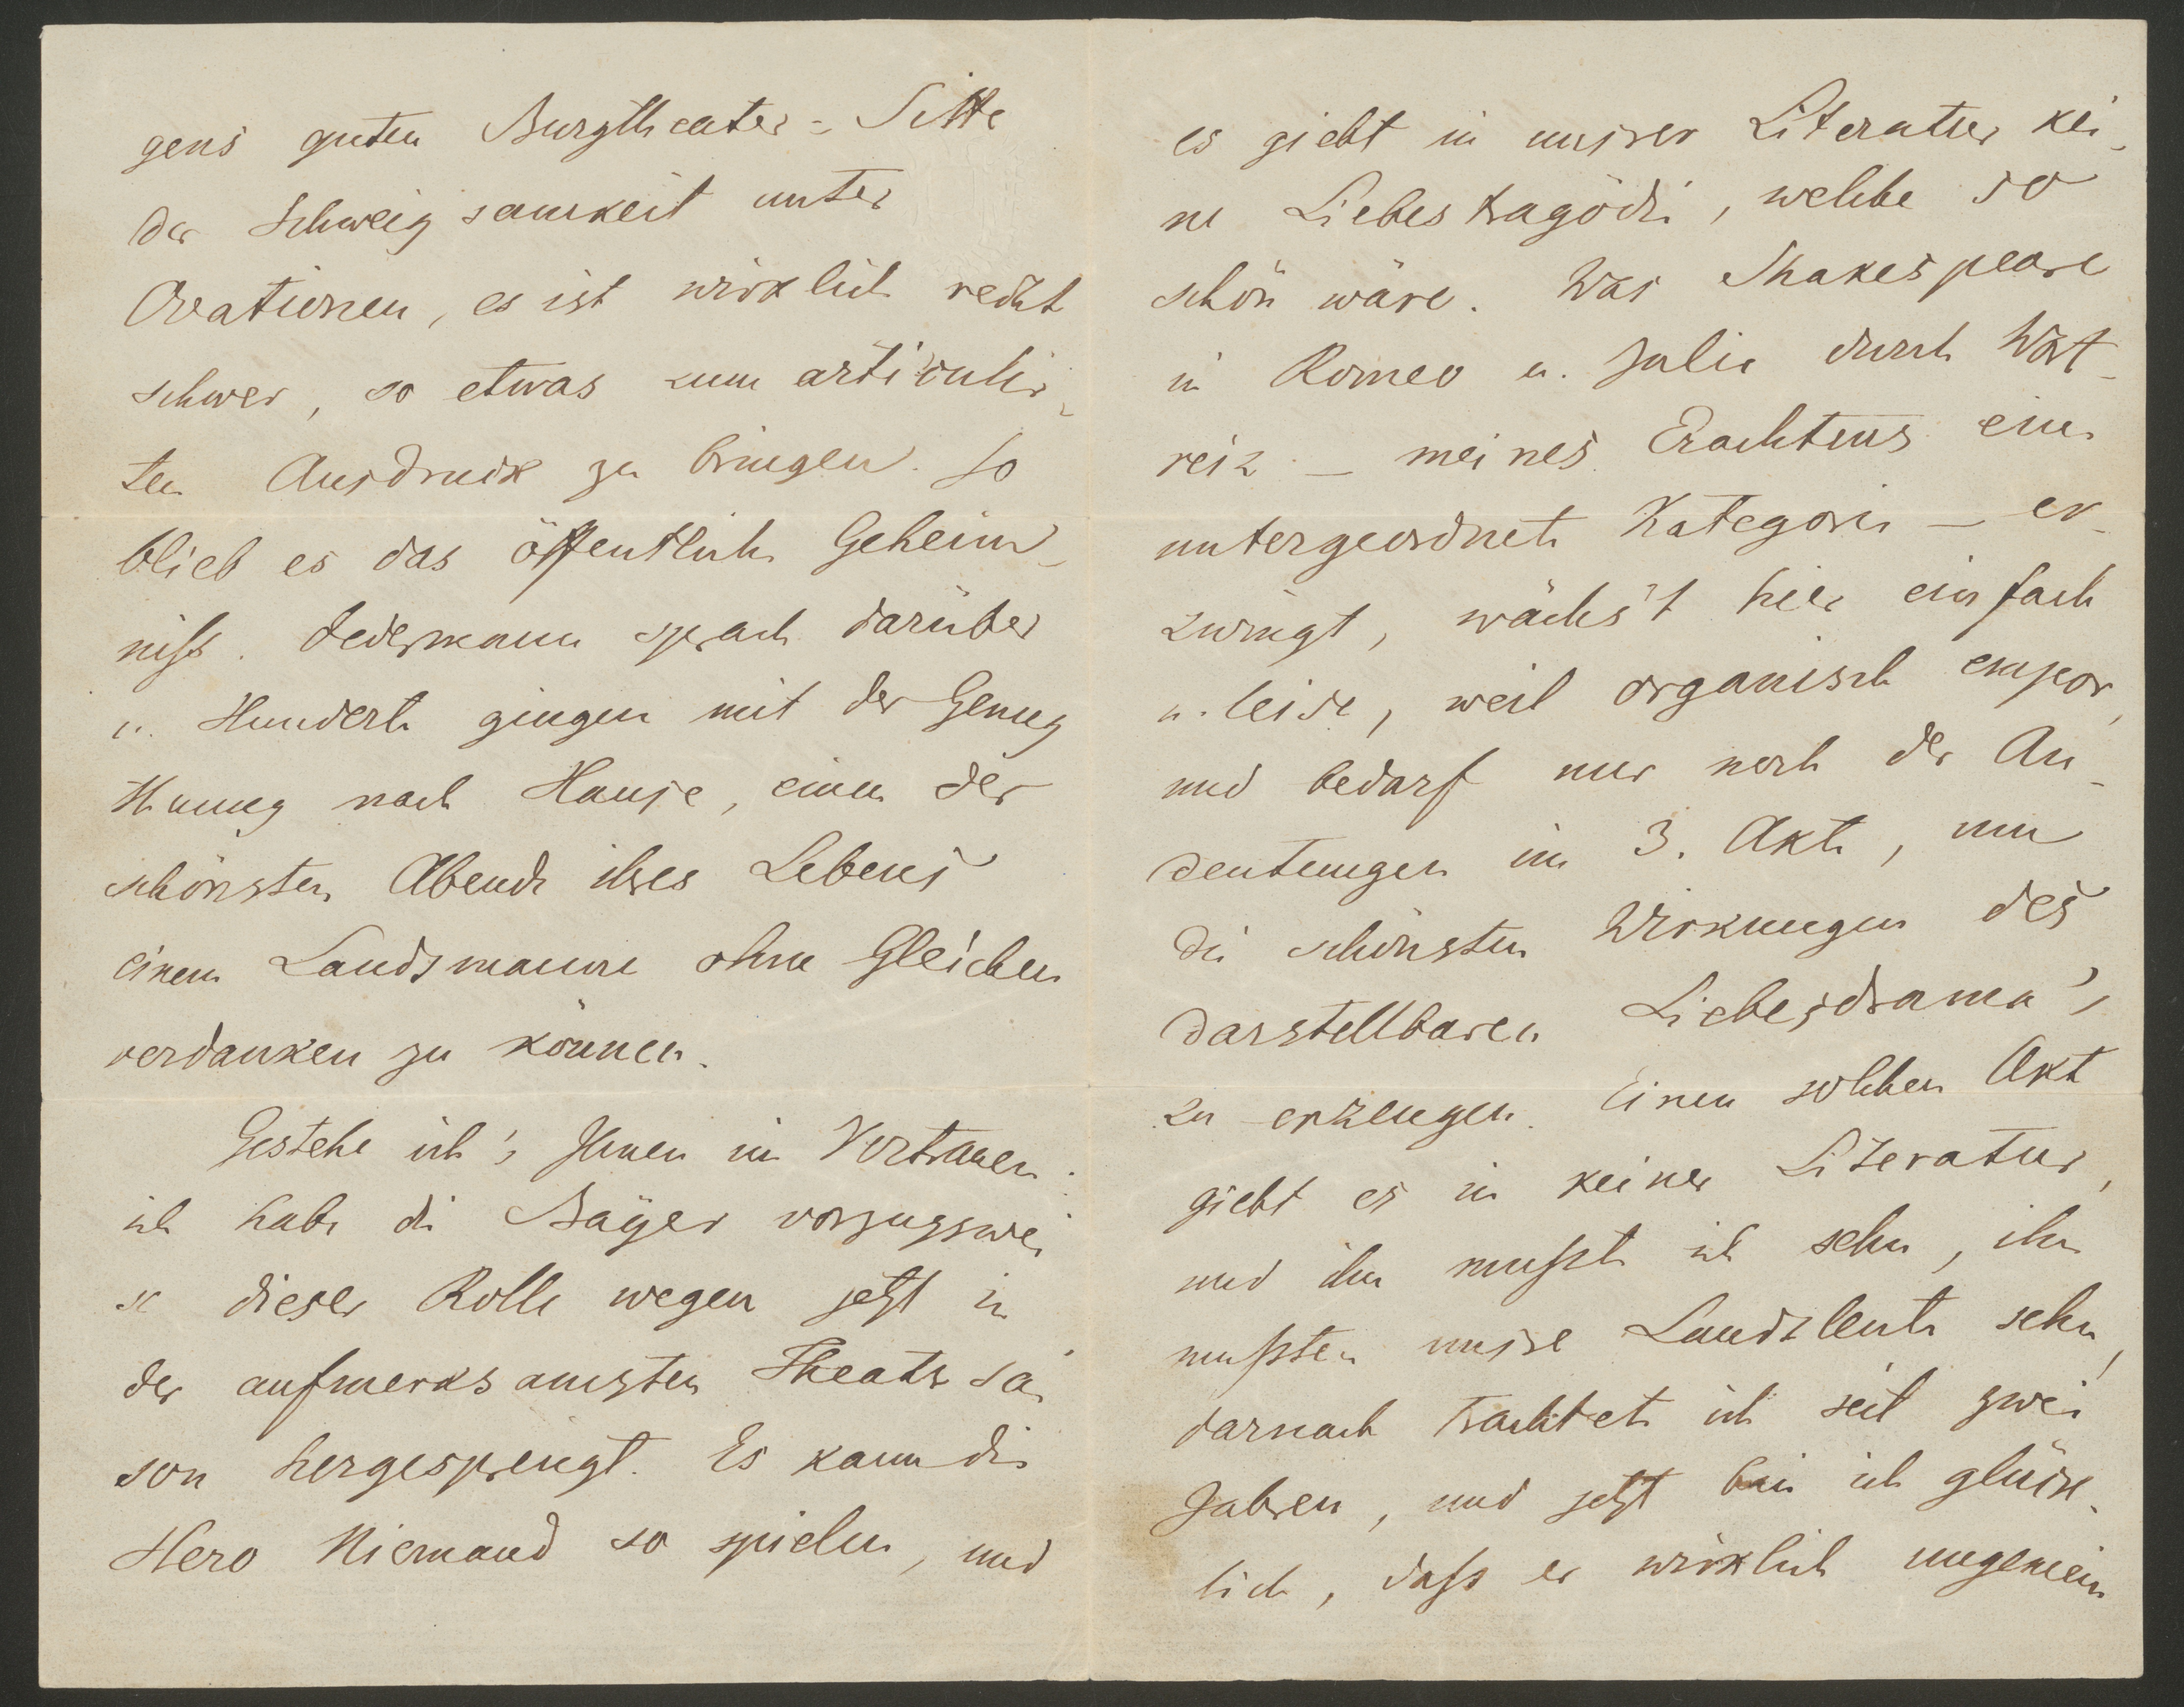 gens guten Burgtheater-Sitte
der Schweigsamkeit unter
Ovationen, es ist wirklich recht
schwer, so etwas zum articulir-
ten Ausdruck zu bringen. So
blieb es das öffentliche Geheim-
niß. Jedermann sprach darüber
u. Hunderte gingen mit der Genug
thuung nach Hause, einen der
schönsten Abende ihres Lebens
einem Landsmanne ohne Gleichen
verdanken zu können.
Gestehe ich's Ihnen im Vertrauen:
ich habe die Bayer vorzugswei
se dieser Rolle wegen jetzt in
der aufmerksamsten Theatersai
son hergesprengt. Es kann die
Hero Niemand so spielen, und
es giebt in unsrer Literatur kei-
ne Liebestragödie, welche so
schön wäre. Was Shakespeare
in Romeo u. Julie durch Wort-
reiz – meines Erachtens eine
untergeordnete Kategorie – er-
zwingt, wächs't hier einfach
u. leise, weil organisch empor,
und bedarf nur noch der An-
deutungen im 3. Akte, um
die schönsten Wirkungen des
darstellbaren Liebesdrama's
zu erzeugen. Einen solchen Akt
giebt es in keiner Literatur,
und ihn mußte ich sehn, ihn
mußten unsre Landsleute sehn,
darnach trachtete ich seit zwei
Jahren, und jetzt bin ich glück-
lich, daß er wirklich ungemein